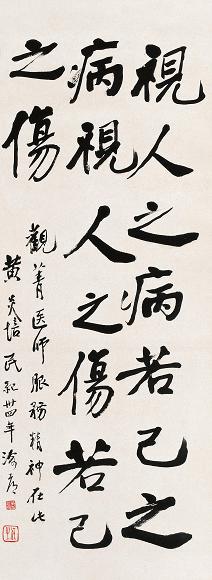 視人之病若己之
病視人之傷若己
之傷
觀菁医师服務精神在此
黄炎培民紀卅四年渝